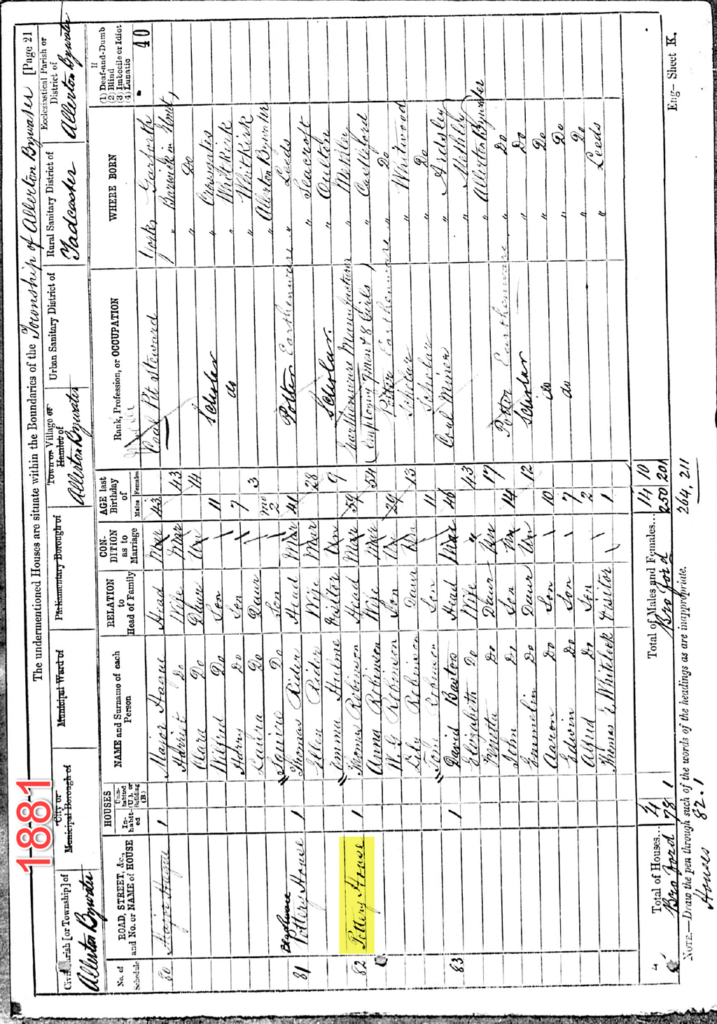 1881
The undermentioned Houses are situate within the Boundaries of the Township of Allerton Bywater [Page 21
Civil Parish [or Township] of
Allerton Bywater
City or
Municipal Borough of
Municipal Ward of
Parliamentary Borough of
Town or Village or
Hamlet of
Allerton Bywater
Urban Sanitary District of
Rural Sanitary District of
Tadcaster
Ecclesiastical Parish or
District of
Allerton Bywater
No. of Schedule
ROAD, STREET, &c., and No. or NAME of HOUSE
HOUSES
In-habit-ed
Un-inhabited (U.), or Building (B.)
NAME and Surname of each Person
RELATION to Head of Family
CON-DITION as to Marriage
AGE last Birthday of
Males
Females
Rank, Profession, or OCCUPATION
WHERE BORN
If
(1) Deaf-and-Dumb
(2) Blind
(3) Imbecile or Idiot
(4) Lunatic
40
80 1 Major Hague Head Mar 43 Coal Pit Steward Yorks Garforth
Harriet Do Wife Mar 43 " Barwick in
Clara Do Daur Un 14 " Do
Wilfred Do Son 11 Scholar " Crossgates
Harry Do Son 7 do " Whitkirk
Laura Do Daur 3 " Whitkirk
Do Son " Allerton Bywater
81 Pottery House 1 Thomas Rider Head Mar 41 Potter Earthenware " Leeds
Ellen Rider Wife Mar 28 " Seacroft
Emma Hulme Visitor Un 9 Scholar " Oulton
82 Pottery House 1 Thomas Robinson Head Mar 59 Earthenware Manufacturer " Methley
Anna Robinson Wife Mar 54 Employing 7 men & 8 Girls " Castleford
W. G Robinson Son Un 20 Potter Earthenware " Do
Lily Robinson Daur 13 Scholar " Whitwood
Robinson Son 11 Scholar " Do
83 1 David Bastow Head Mar 46 Coal Miner " Ardsley
Elizabeth Do Wife " 43 " Methley
Do Daur Un 17 Potter Earthenware " Allerton Bywater
John Do Son Un 14 " Do
Emmelin Do Daur Un 12 Scholar " Do
Aaron Do Son 10 do " Do
Edwin Do Son 7 do " Do
Alfred Do Son 2 " Do
Thomas Whitehead Visitor 1 " Leeds
4 Total of Houses... 4 Total of Males and Females... 14 10
Bro Ford 78.1 Bro Ford 250 201
NOTE.—Draw the pen through such of the words of the headings as are inappropriate.
Houses 82.1 264, 211
Eng—Sheet K.